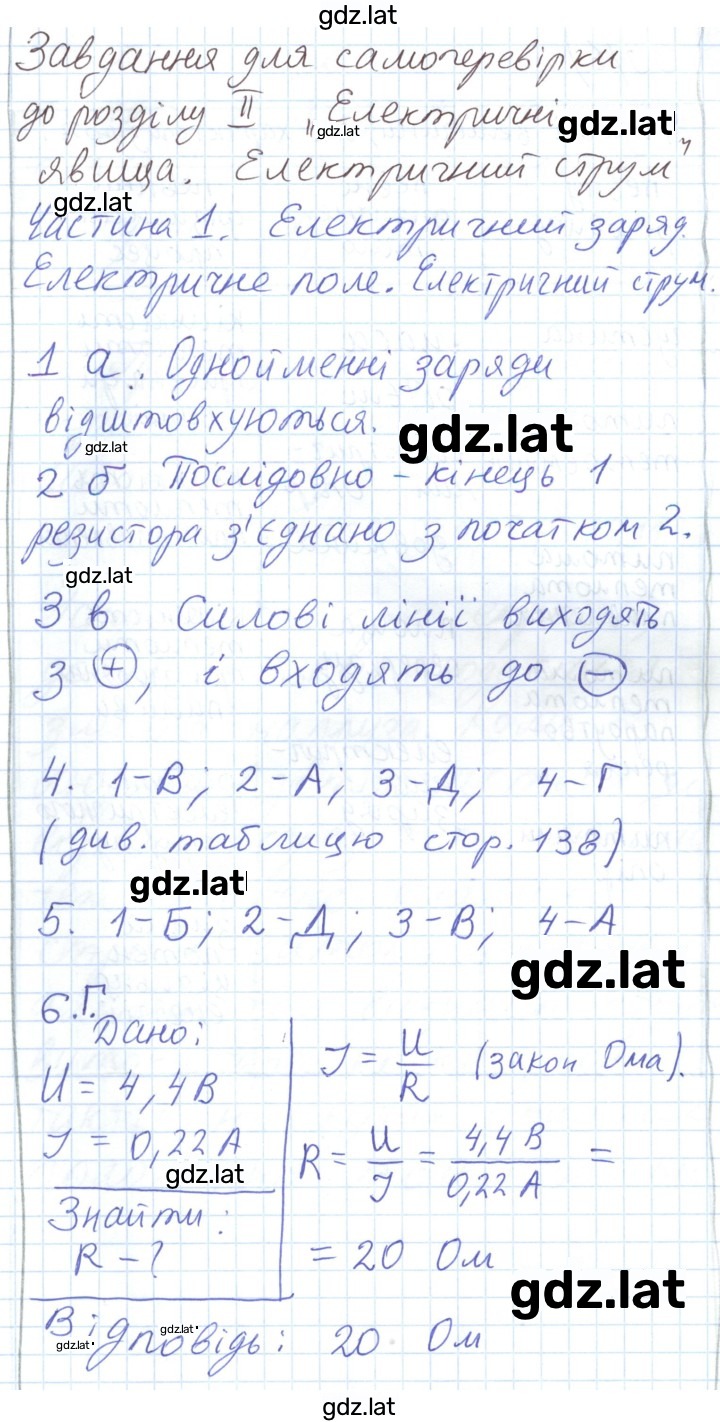 gdz.lat
Завдання для самоперевірки
до розділу II „Електричні
gdz.lat gdz.lat
явища. Електричний струм"
gdz.lat
Частина 1. Електричний заряд.
Електричне поле. Електричний струм.
1 а. Однойменні заряди
відштовхуються.
gdz.lat gdz.lat
2 б Послідовно - кінець 1
резистора з'єднано з початком 2.
gdz.lat
3 в Силові лінії виходять
з ⊕, і входять до ⊖
4. 1-В; 2-А; 3-Д; 4-Г
(див. таблицю стор. 138)
gdz.lat
5. 1-Б; 2-Д; 3-В; 4-А
gdz.lat
6.Г.
Дано:
U = 4,4 В
I = 0,22 А
gdz.lat
Знайти:
R - ?
I = U/R (закон Ома).
R = U/I = 4,4 В/0,22 А =
= 20 Ом
gdz.lat
Відповідь: 20 Ом
gdz.lat gdz.lat
gdz.lat